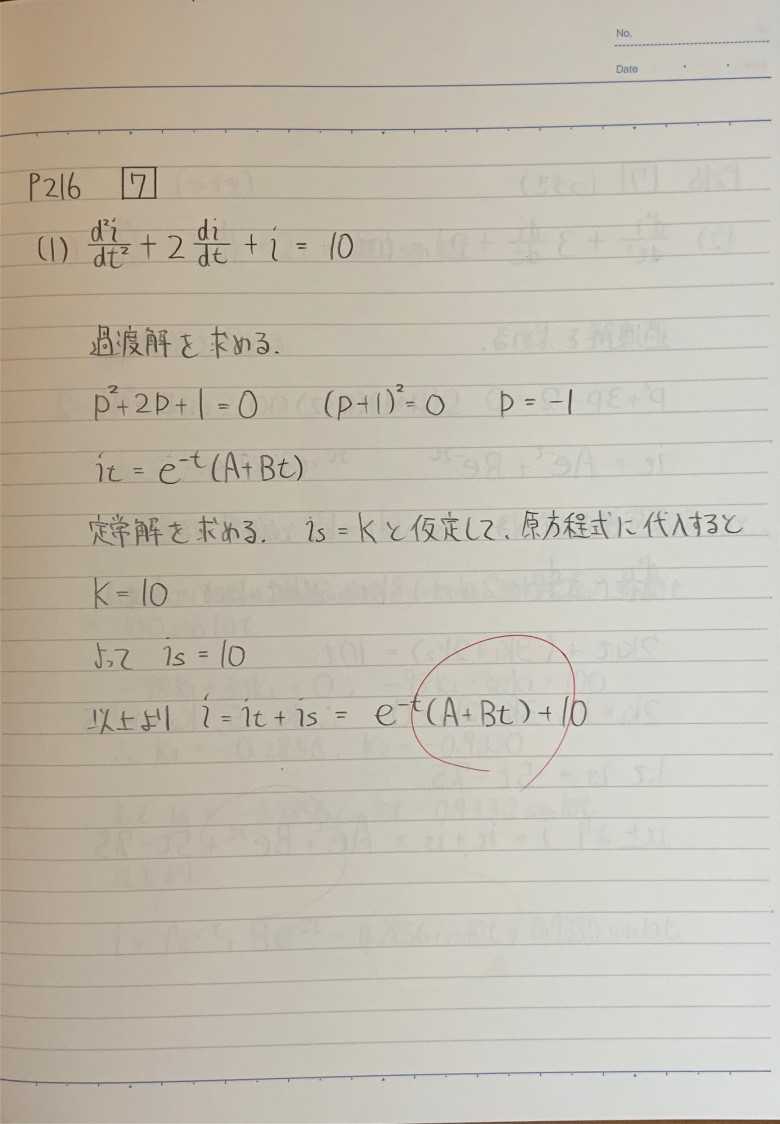 No.
Date
P216 7
(1) d²i/dt² + 2 di/dt + i = 10
過渡解を求める.
p²+2p+1=0 (p+1)²=0 p=-1
it = e⁻ᵗ(A+Bt)
定学解を求める. is=Kと仮定して、原方程式に代入すると
K=10
よって is=10
以上より i=it+is = e⁻ᵗ(A+Bt)+10